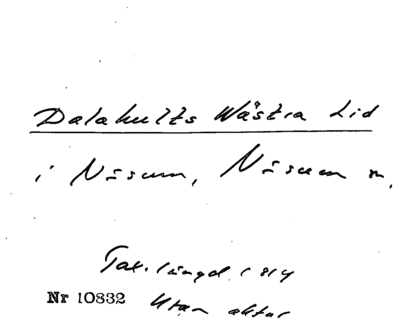 Dalahults Wästra Lid
i Näsum, Näsum m.
Tax. längd. 1814
Nr 10832 Utan aktnr